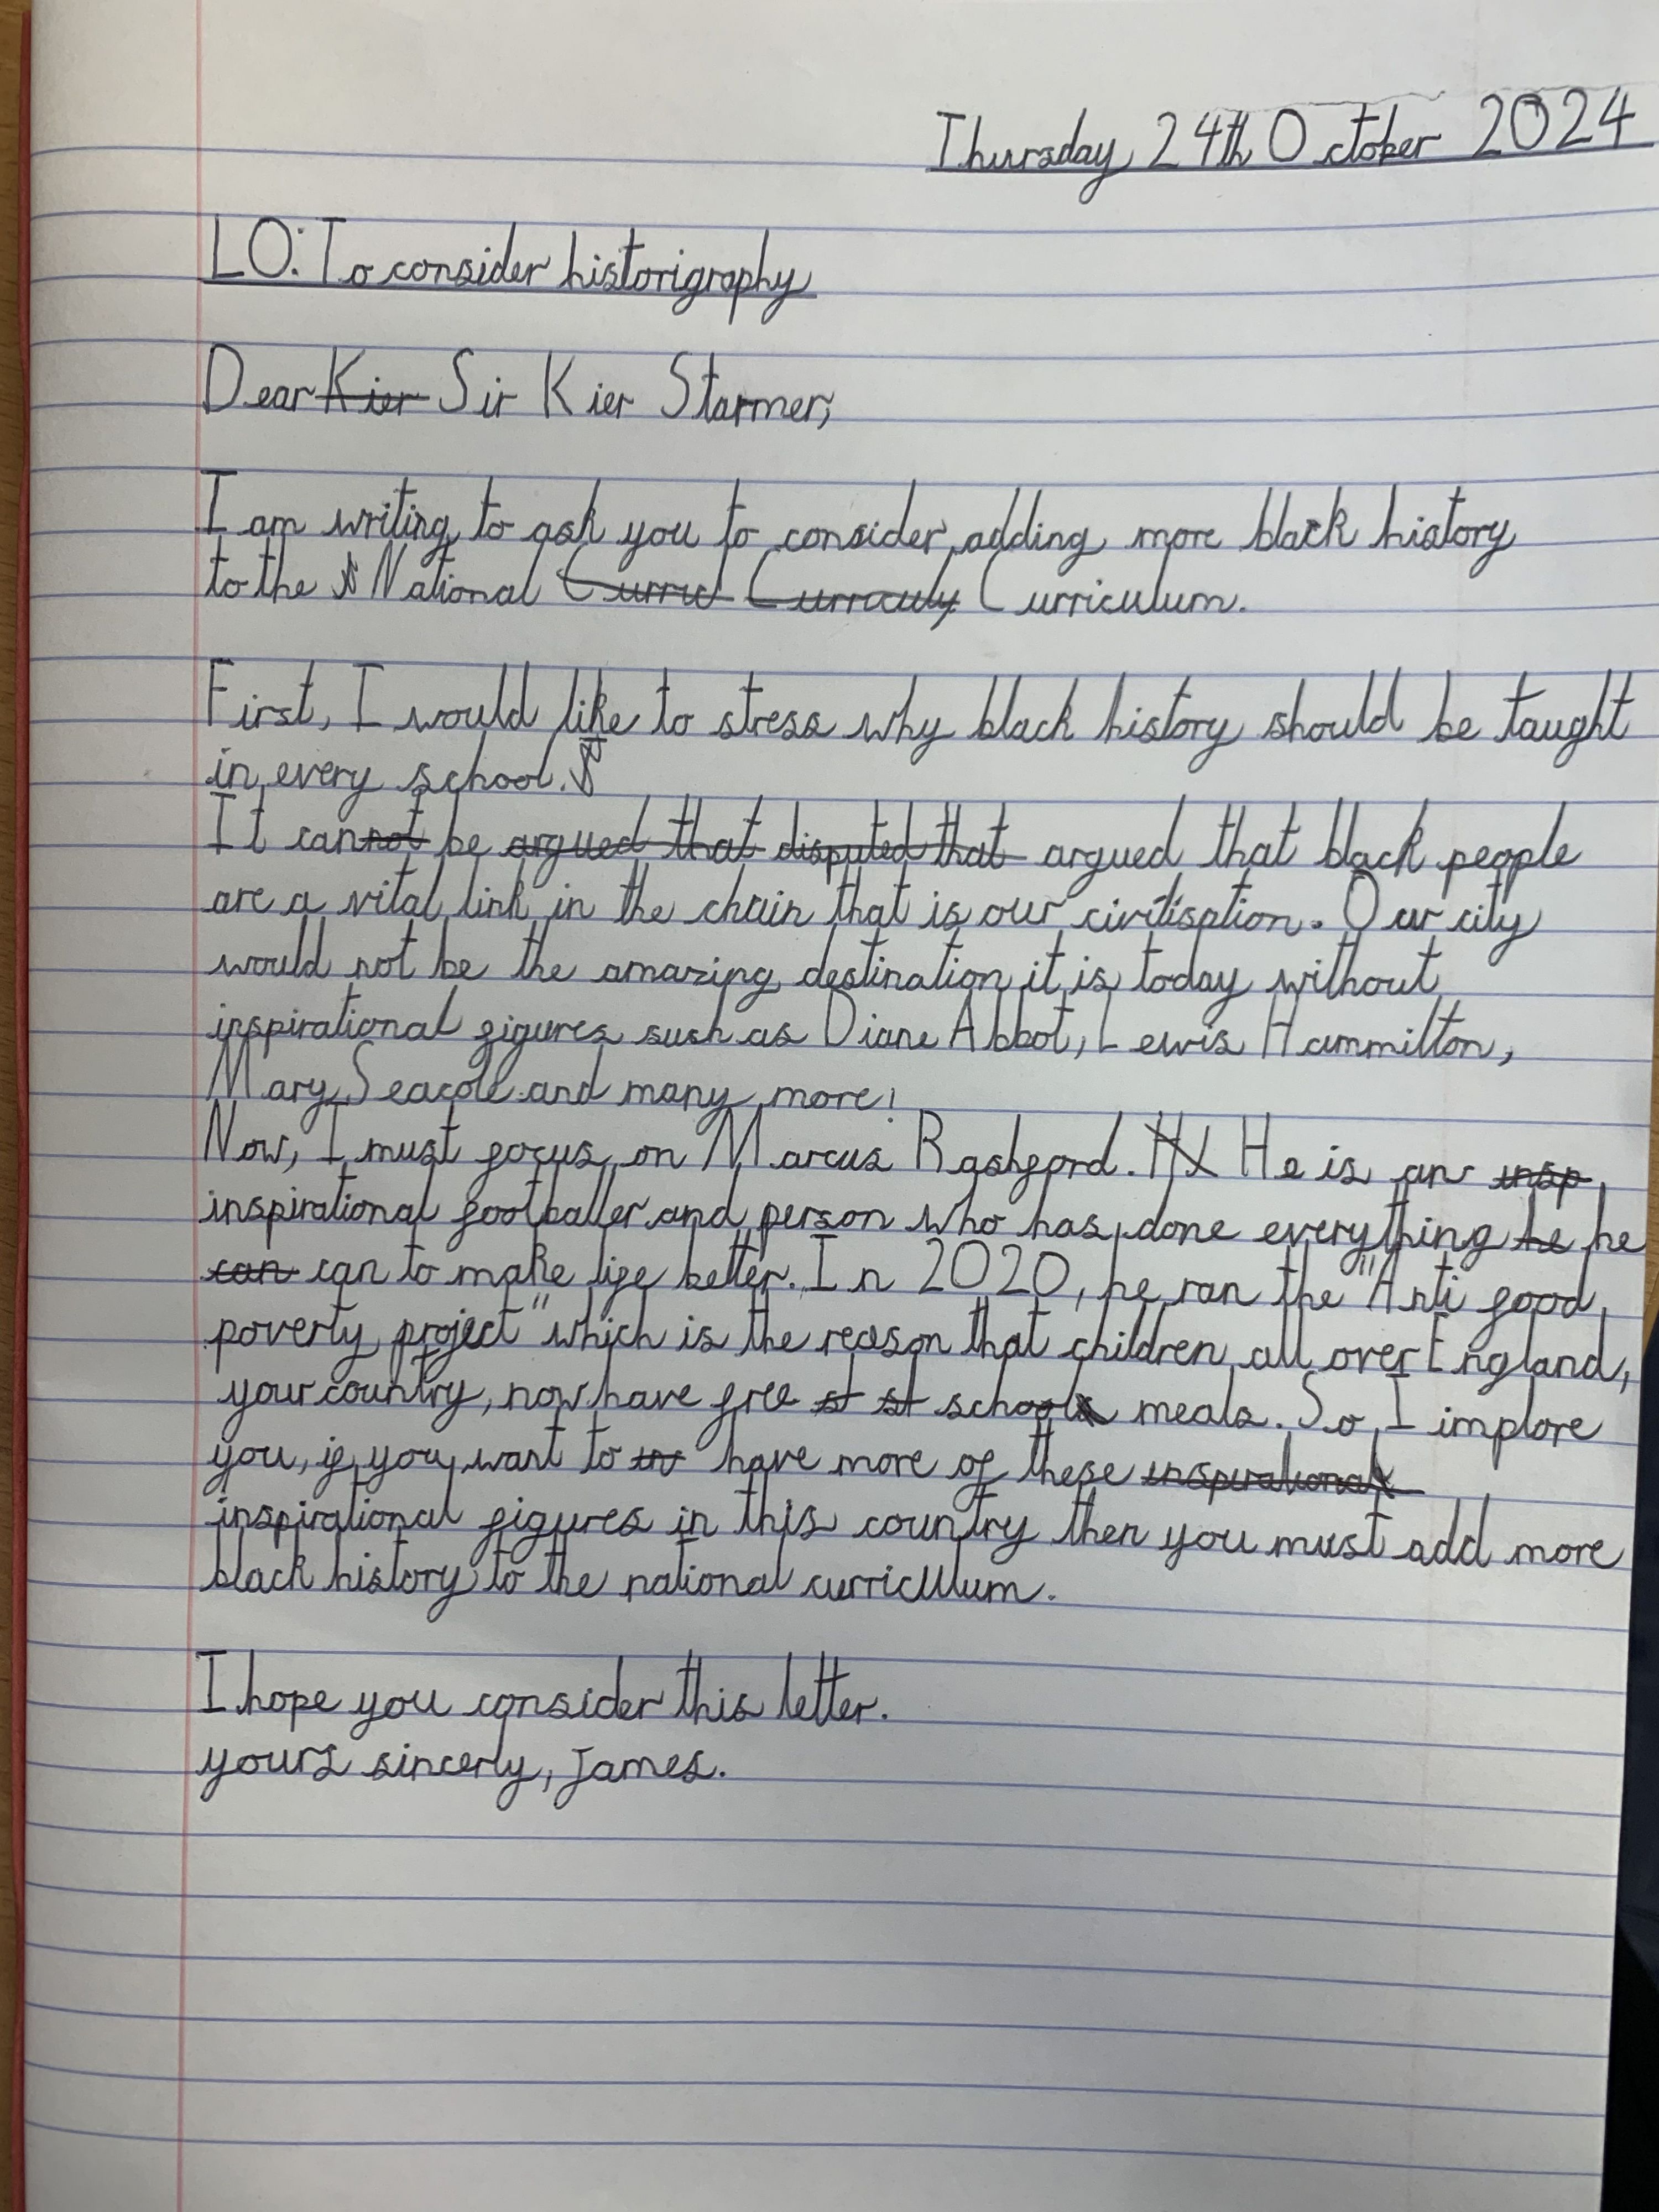 Thursday 24th October 2024
LO: To consider historigraphy
Dear Kier Sir Kier Starmer,
I am writing to ask you to consider adding more black history
to the National Curric Curriculy Curriculum.
First, I would like to stress why black history should be taught
in every school.
It cannot be argued that disputed that argued that black people
are a vital link in the chain that is our civilisation. Our city
would not be the amazing destination it is today without
inspirational figures such as Diane Abbot, Lewis Hammilton,
Mary Seacole and many more!
Now, I must focus on Marcus Rashford. He is an insp
inspirational footballer and person who has done everything he he
can can to make life better. In 2020, he ran the "Anti food
poverty project" which is the reason that children all over England,
your country, now have free st st schools meals. So I implore
you, if you want to in have more of these inspirational
inspirational figures in this country then you must add more
black history to the national curriculum.
I hope you consider this letter.
yours sincerly, James.